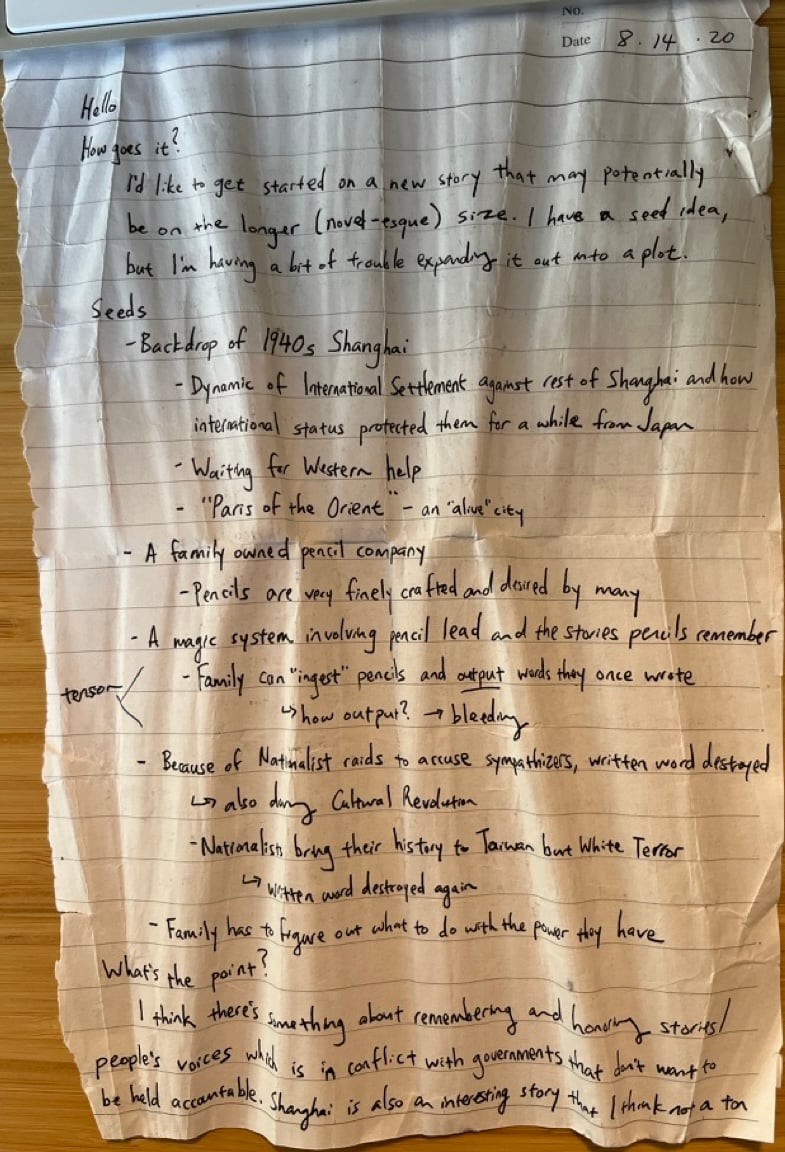 No.
Date 8.14.20
Hello
How goes it?
I'd like to get started on a new story that may potentially
be on the longer (novel-esque) size. I have a seed idea,
but I'm having a bit of trouble expanding it out into a plot.
Seeds
- Backdrop of 1940s Shanghai
- Dynamic of International Settlement against rest of Shanghai and how
international status protected them for a while from Japan
- Waiting for Western help
- "Paris of the Orient" - an "alive" city
- A family owned pencil company
- Pencils are very finely crafted and desired by many
- A magic system involving pencil lead and the stories pencils remember
tensor - Family can "ingest" pencils and output words they once wrote
↳ how output? → bleeding
- Because of Nationalist raids to accuse sympathizers, written word destroyed
↳ also during Cultural Revolution
- Nationalists bring their history to Taiwan but White Terror
↳ written word destroyed again
- Family has to figure out what to do with the power they have
What's the point?
I think there's something about remembering and honoring stories/
people's voices which is in conflict with governments that don't want to
be held accountable. Shanghai is also an interesting story that I think not a ton